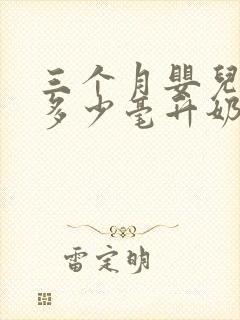 三个月嬰兒
多少毫升奶
雷定明